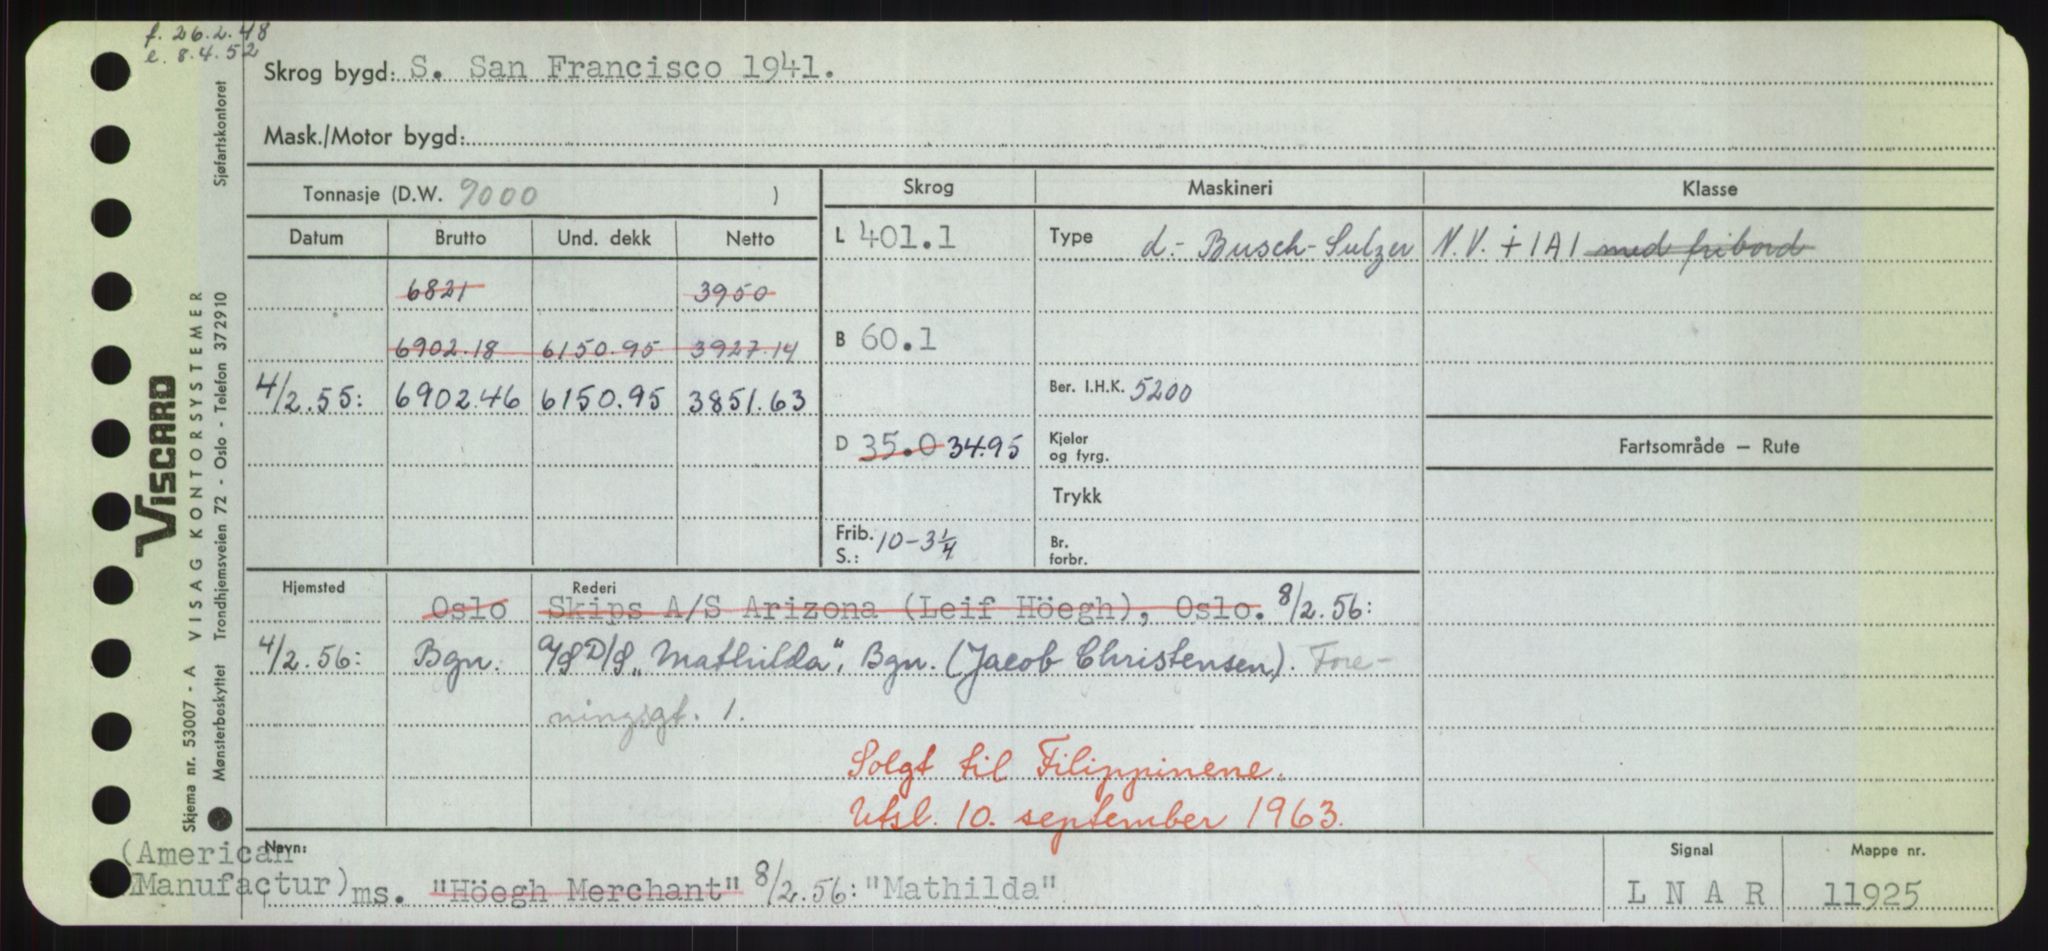 f. 26.2.48
e. 8.4.52
Skrog bygd: S. San Francisco 1941.
Mask./Motor bygd:
Tonnasje (D.W. 9000 )
Skrog
Maskineri
Klasse
Datum
Brutto
Und. dekk
Netto
L 401.1
Type d.- Busch-Sulzer
N.V. ☩ 1A1 med fribord
6821 3950
6902.18 6150.95 3927.14
B 60.1
4/2.55: 6902.46 6150.95 3851.63
Ber. I.H.K. 5200
D 35.0 34.95
Kjeler
og fyrg.
Fartsområde — Rute
Trykk
Frib.
S.: 10-3 1/4
Br.
forbr.
Hjemsted
Rederi
Oslo Skips A/S Arizona (Leif Höegh), Oslo. 8/2.56:
4/2.56: Bgn. A/S D/S „Mathilda", Bgn. (Jacob Christensen). Fore-
ningsgt. 1.
Solgt til Filippinene.
Utsl. 10. september 1963.
Navn:
(American
Manufactur) ms. "Höegh Merchant" 8/2.56: "Mathilda"
Signal
L N A R
Mappe nr.
11925
VISCARD
VISAG KONTORSYSTEMER
Skjema nr. 53007 - A
Mønsterbeskyttet Trondhjemsveien 72 - Oslo - Telefon 372910 Sjøfartskontoret